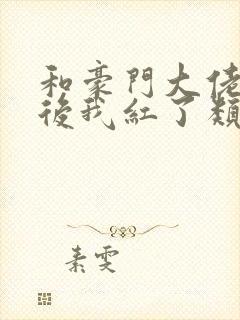 和豪門大佬
後我紅了類
素雯